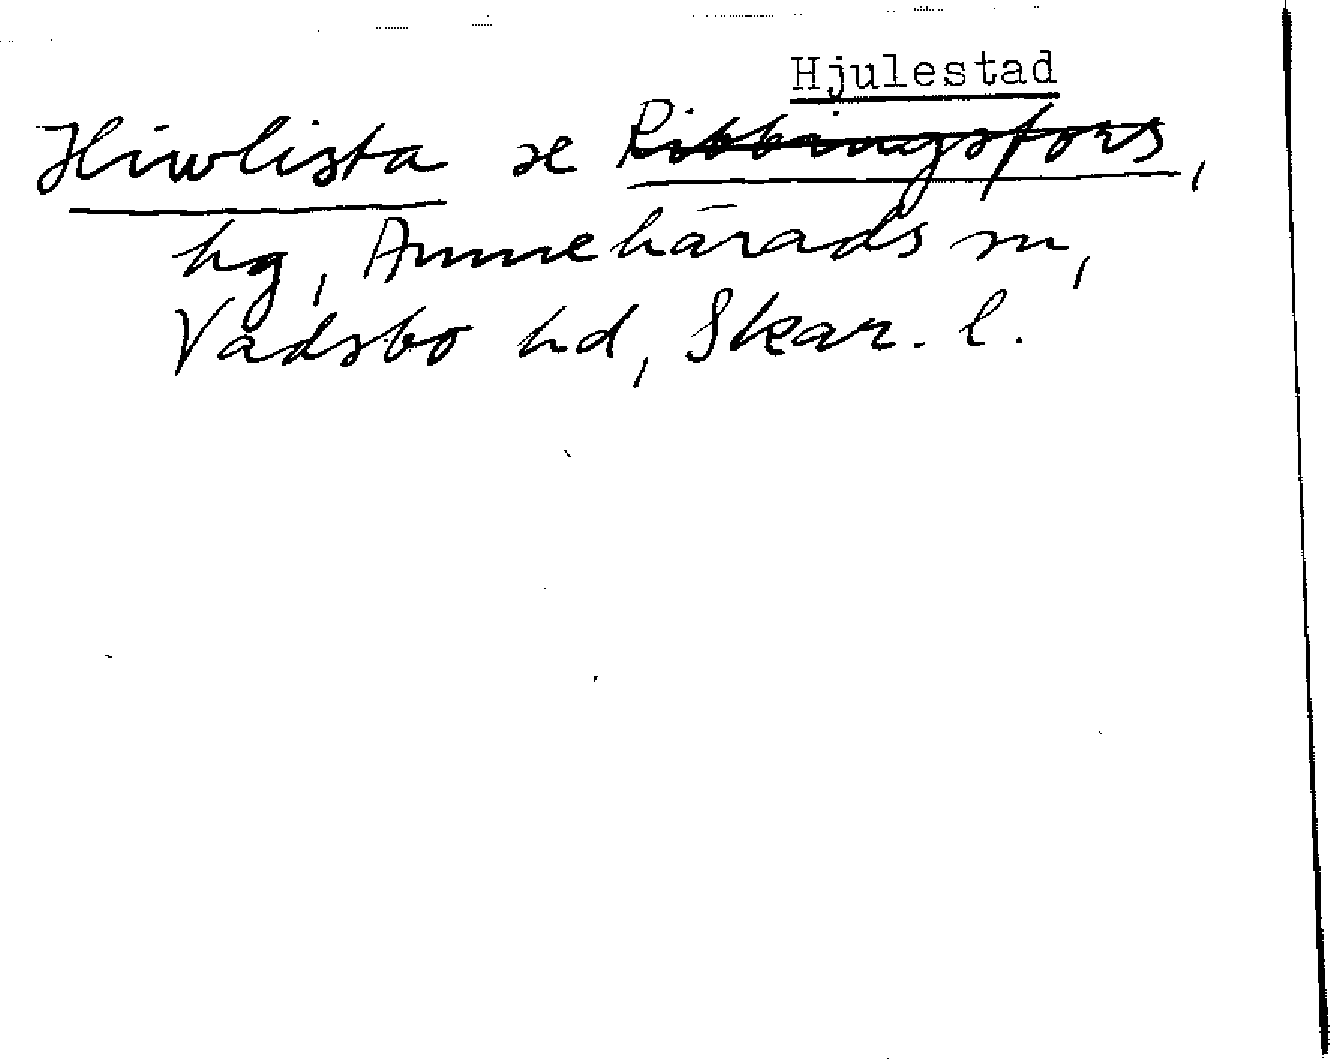 Hjulestad
Hiwlista se Ribbingsfors,
hg, Amnehärads sn,
Vadsbo hd, Skar. l.